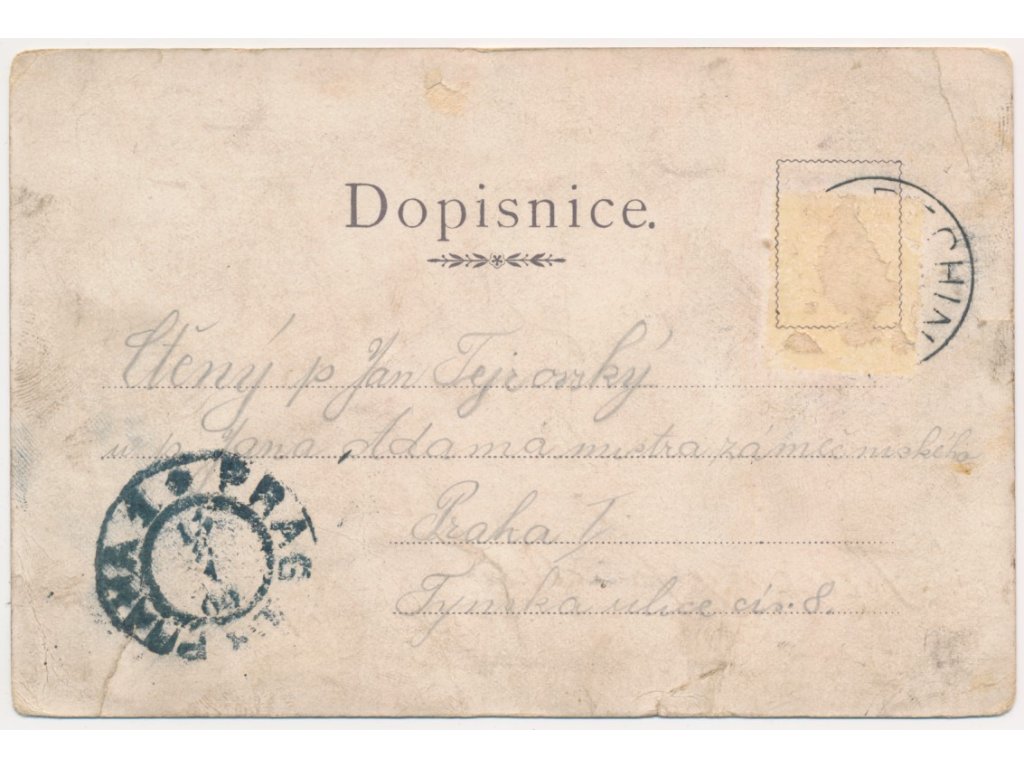 Dopisnice.
CHIN
Ctěný p Jan Tejrovský
u p. Jana Adama mistra zámečnického
Praha I
Týnská ulice čís. 8.
PRAG
PRAHA 1